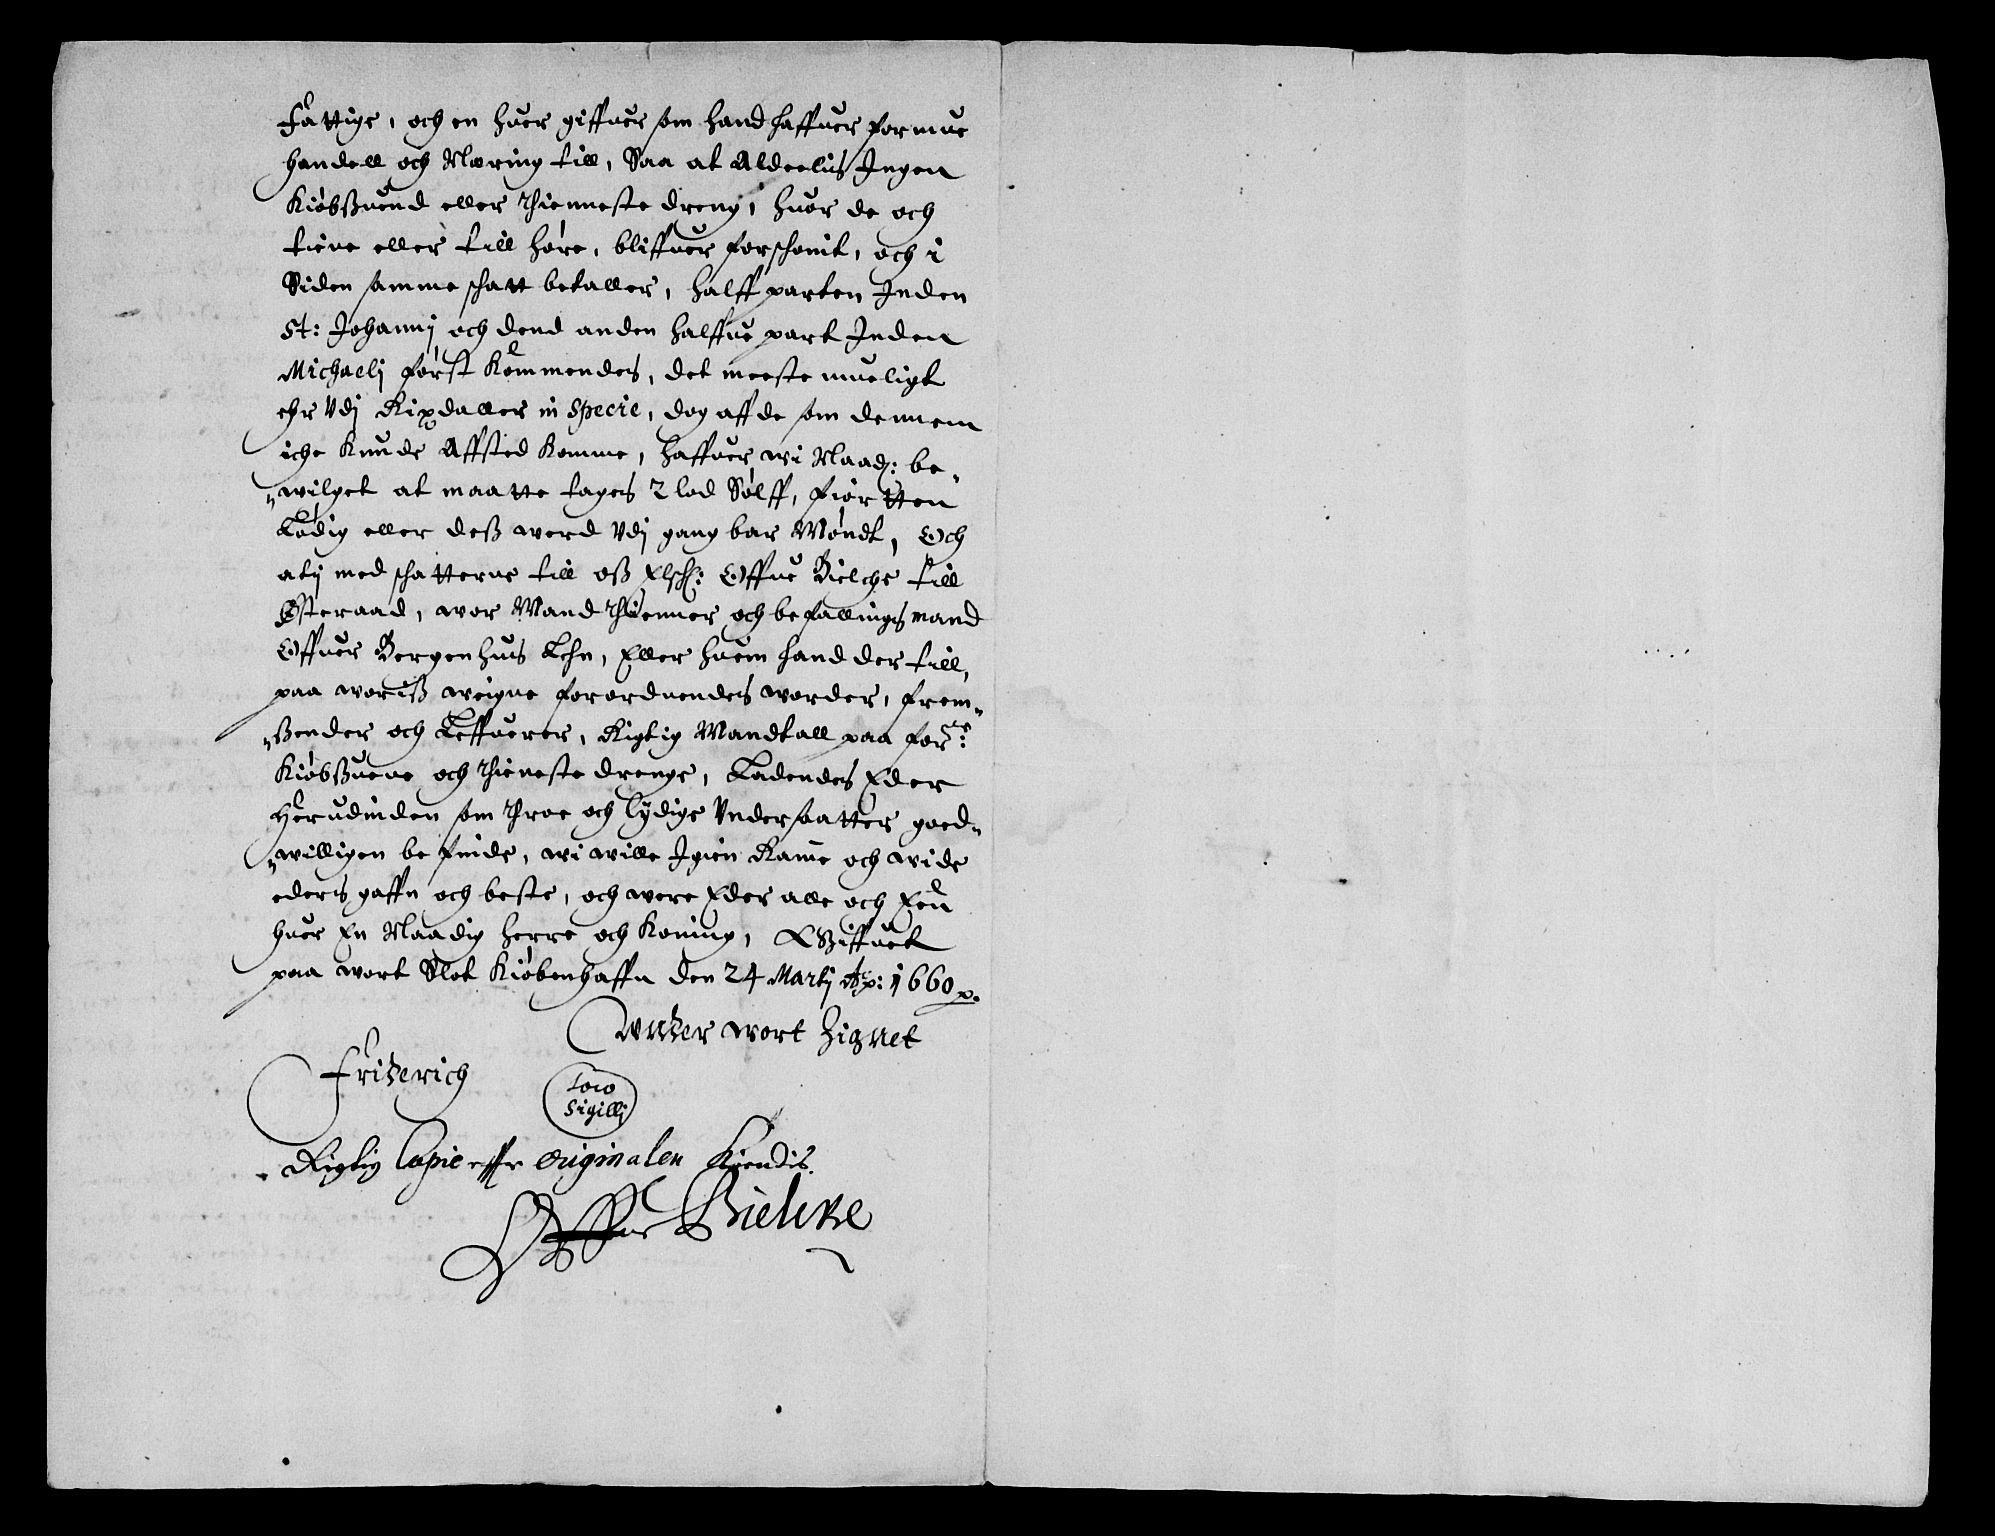 Fattige, och en huer giffuer som hand haffuer formue
handell och Næring till, Saa at Aldeelis Ingen
Kiøbßuend eller Thienneste dreng, huor de och
tiene eller till høre, bliffuer forschonit, och i
Siden samme schatt betaller, halff parten Inden
St: Johannj och dend anden halffue part Inden
Michaelj først Kommendes, det meeste mueligt
ehr Vdj Rixdaller in Specie, dog aff de som dennem
iche Kunde Affsted Komme, haffuer wi Naad: be-
"wilget at maatte tages 2 lod Sølff, fiørtten
Lødig eller deß werd Vdj gangbar Møndt, Och
atj med schatterne till oß Elsch: Offue Bielche till
Østeraad, wor Mand Thienner och befallingsmand
Offuer Bergenhuus Lehn, Eller huem hand der till,
paa woriß weigne forordnendes worder, frem-
"ßender och Leffuerer, Rigtig Mandtall paa for:ne
Kiøbßuene och Thieneste drenge, Ladendes Eder
Herudinden som Throe och lydige Vndersaatter goed-
"willigen befinde, wi wille Igien Rame och wide
eders gaffn och beste, och were Eder alle och Een
huer En Naadig herre och Koning, Giffuet
paa wort Slot Kiøbenhaffn den 24 Martj Ao: 1660 p.
Under wort Zignet
Friderich
Loco
Sigillj
Rigtig Copie effter originalen Kiendis.
Offue Bielcke